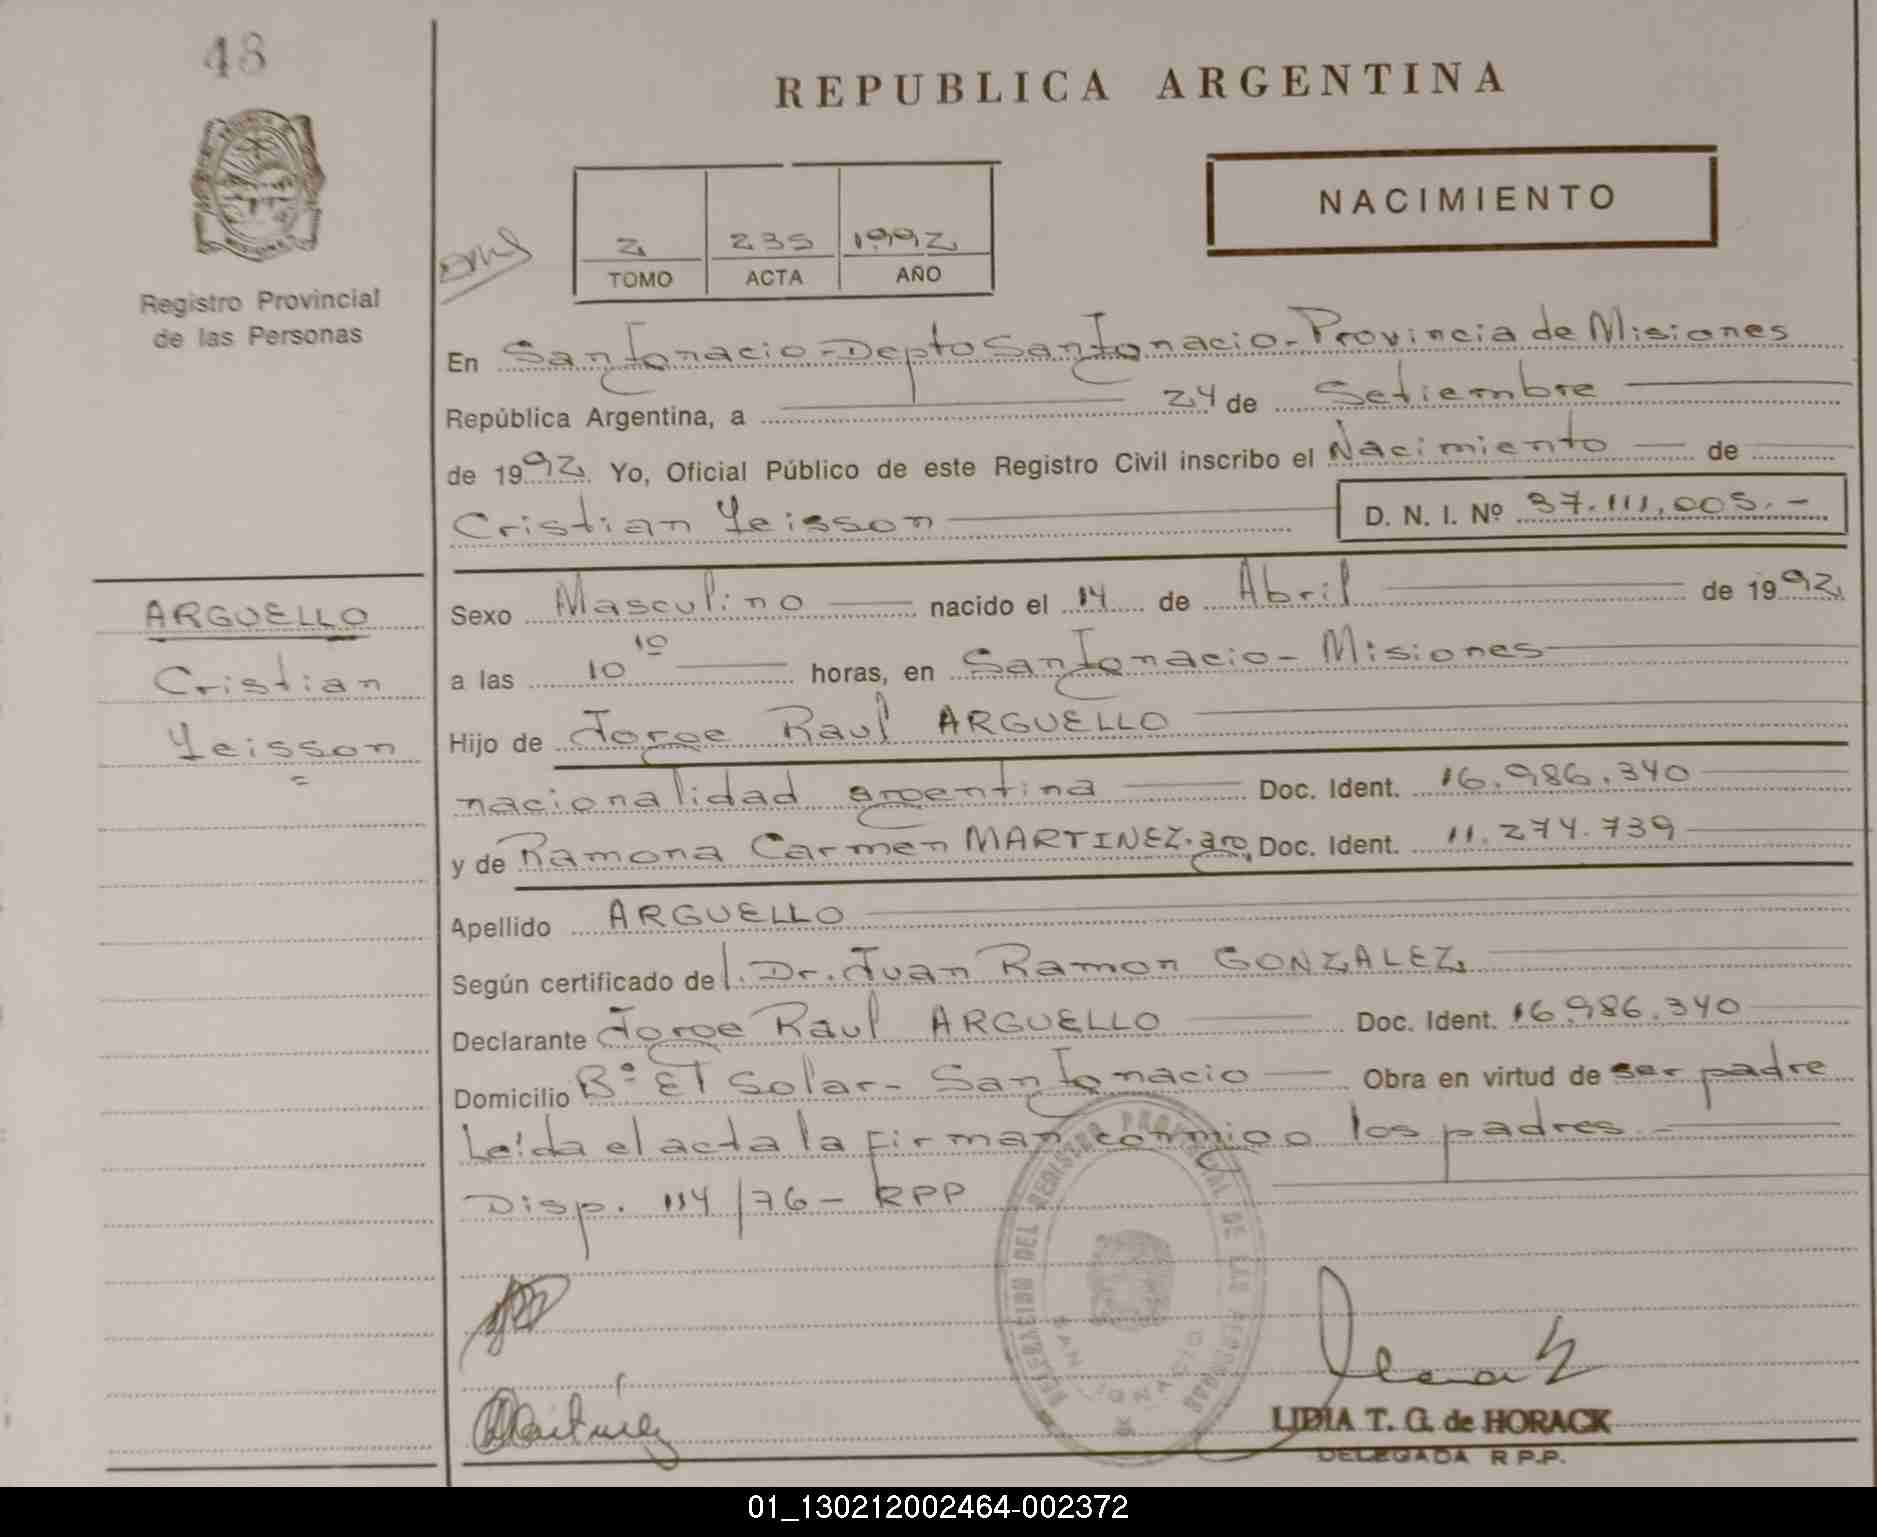 48
REPUBLICA ARGENTINA
NACIMIENTO
2 235 1992
TOMO ACTA AÑO
Registro Provincial
de las Personas
En San Ignacio - Depto San Ignacio - Provincia de Misiones
República Argentina, a 24 de Setiembre
de 1992 Yo, Oficial Público de este Registro Civil inscribo el Nacimiento de
Cristian Yeisson D. N. I. Nº 37.111.005.-
ARGUELLO
Cristian
Yeisson
Sexo Masculino nacido el 14 de Abril de 1992
a las 10 10 horas, en San Ignacio - Misiones
Hijo de Jorge Raul ARGUELLO
nacionalidad argentina Doc. Ident. 16.986.340
y de Ramona Carmen MARTINEZ. arg. Doc. Ident. 11.274.739
Apellido ARGUELLO
Según certificado del. Dr. Juan Ramon GONZALEZ
Declarante Jorge Raul ARGUELLO Doc. Ident. 16.986.340
Domicilio Bº El Solar - San Ignacio Obra en virtud de ser padre
Leída el acta la firman conmigo los padres -
Disp. 114/76 - RPP
DELEGACION DEL REGISTRO PROVINCIAL DE LAS PERSONAS
SAN IGNACIO
LIDIA T. G. de HORACK
DELEGADA R P.P.
01_130212002464-002372